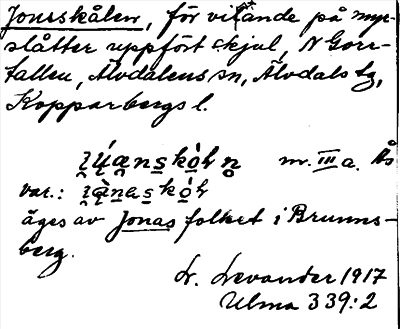 Jonsskålen, för vistande på myr-
slåtter uppfört skjul, N Gorr-
fallen, Älvdalens sn, Älvdals tg,
Kopparbergs l.
m. III a. Ås
var.:
äges av Jonas folket i Brunns-
berg.
L. Levander 1917
Ulma 339:2